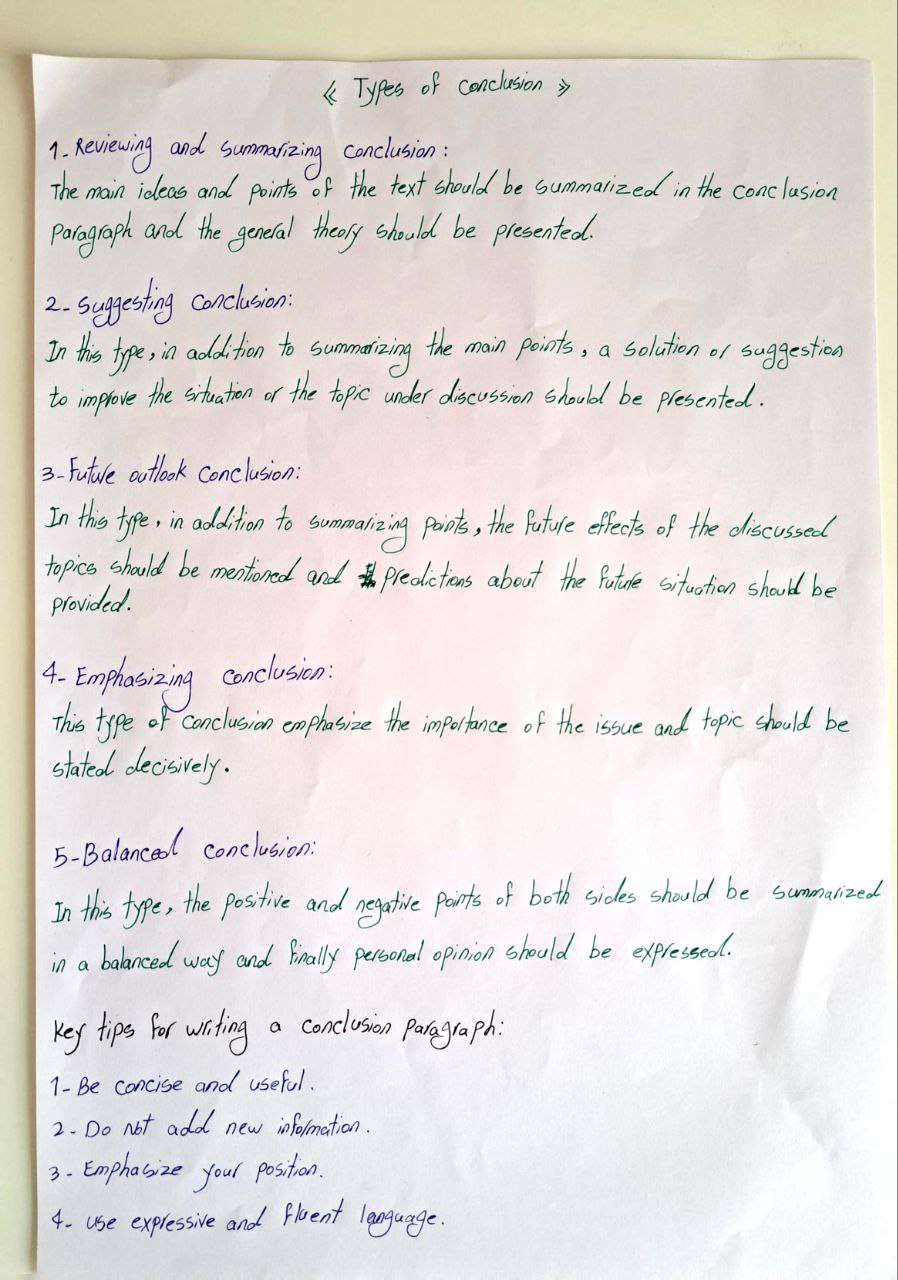 « Types of conclusion »
1- Reviewing and summarizing conclusion:
The main ideas and points of the text should be summarized in the conclusion
paragraph and the general theory should be presented.
2- Suggesting conclusion:
In this type, in addition to summarizing the main points, a solution or suggestion
to improve the situation or the topic under discussion should be presented.
3- Future outlook conclusion:
In this type, in addition to summarizing points, the future effects of the discussed
topics should be mentioned and predictions about the future situation should be
provided.
4- Emphasizing conclusion:
This type of conclusion emphasize the importance of the issue and topic should be
stated decisively.
5- Balanced conclusion:
In this type, the positive and negative points of both sides should be summarized
in a balanced way and finally personal opinion should be expressed.
Key tips for writing a conclusion paragraph:
1- Be concise and useful.
2- Do not add new information.
3- Emphasize your position.
4- use expressive and fluent language.